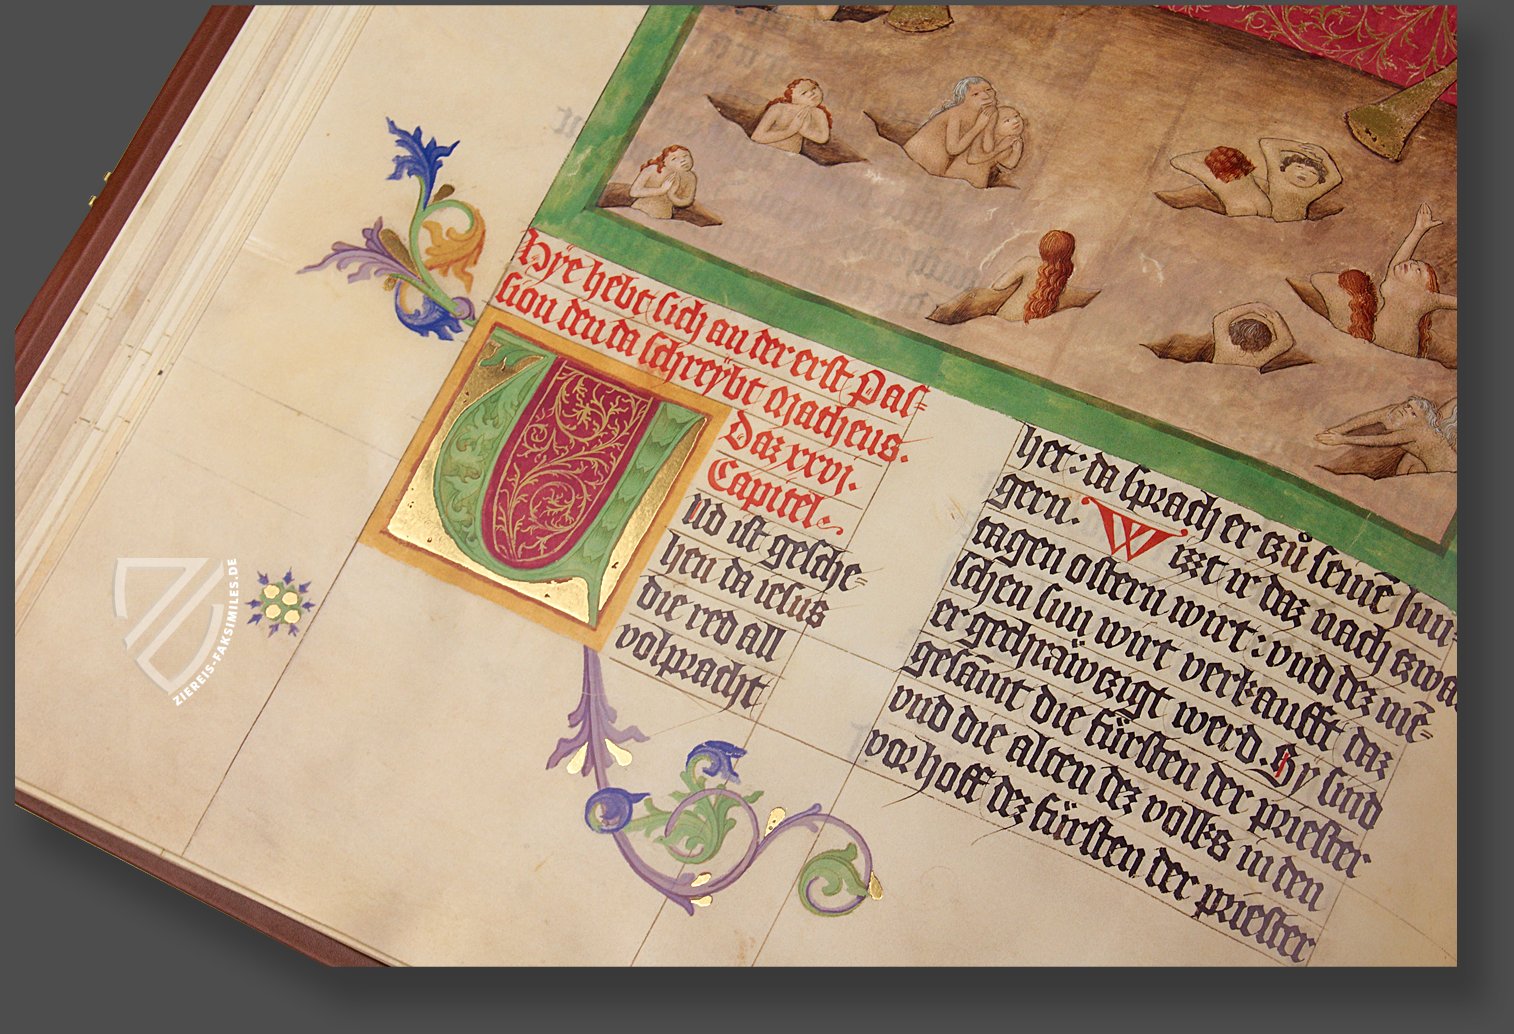 Hÿe hebt sich an der erst Pas⸗
sion den da schreybt Matheus.
Daz xxvi.
Capitel.
Und ist gesche⸗
hen da iesus
die red all
volpracht
het: da sprach er czů seinē Jun⸗
gern. Wizt ir daz nach czwa
tagen ostern wirt: vnd dez mē⸗
schen sun wirt verkaufft daz
er gechräwczigt werd. Hy sind
gesāmt die fürsten der priester
vnd die alten dez volks in den
vorhoff dez fürsten der priester
ZIEREIS-FAKSIMILES.DE